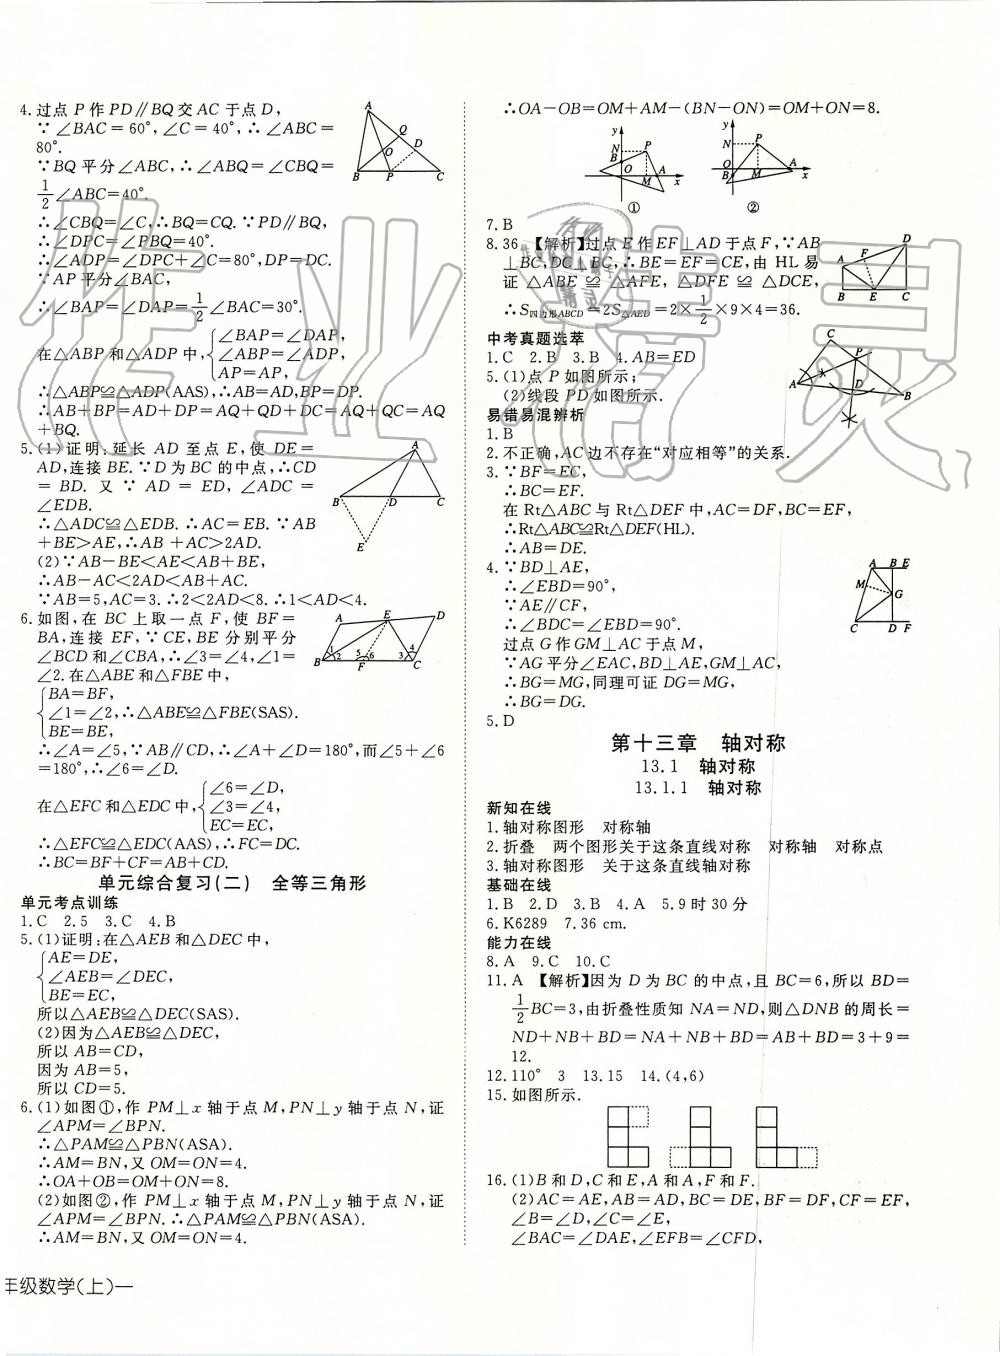 4.过点 P 作 PD∥BQ 交 AC 于点 D,
∵∠BAC=60°,∠C=40°,∴∠ABC=
80°.
∵BQ 平分∠ABC,∴∠ABQ=∠CBQ=
1/2∠ABC=40°.
∴∠CBQ=∠C,∴BQ=CQ.∵PD∥BQ,
∴∠DPC=∠PBQ=40°.
∴∠ADP=∠DPC+∠C=80°,DP=DC.
∵AP 平分∠BAC,
∴∠BAP=∠DAP=1/2∠BAC=30°.
在△ABP 和△ADP 中,
∠BAP=∠DAP,
∠ABP=∠ADP,
AP=AP,
∴△ABP≌△ADP(AAS),∴AB=AD,BP=DP.
∴AB+BP=AD+DP=AQ+QD+DC=AQ+QC=AQ
+BQ.
5.(1)证明:延长 AD 至点 E,使 DE=
AD,连接 BE.∵D 为 BC 的中点,∴CD
=BD. 又∵AD=ED,∠ADC=
∠EDB.
∴△ADC≌△EDB.∴AC=EB.∵AB
+BE>AE,∴AB +AC>2AD.
(2)∵AB-BE<AE<AB+BE,
∴AB-AC<2AD<AB+AC.
∵AB=5,AC=3.∴2<2AD<8.∴1<AD<4.
6.如图,在 BC 上取一点 F,使 BF=
BA,连接 EF,∵CE,BE 分别平分
∠BCD 和∠CBA,∴∠3=∠4,∠1=
∠2.在△ABE 和△FBE 中,
BA=BF,
∠1=∠2,∴△ABE≌△FBE(SAS).
BE=BE,
∴∠A=∠5,∵AB∥CD,∴∠A+∠D=180°,而∠5+∠6
=180°,∴∠6=∠D.
在△EFC 和△EDC 中,
∠6=∠D,
∠3=∠4,
EC=EC,
∴△EFC≌△EDC(AAS),∴FC=DC.
∴BC=BF+CF=AB+CD.
单元综合复习(二) 全等三角形
单元考点训练
1.C 2.5 3.C 4.B
5.(1)证明:在△AEB 和△DEC 中,
AE=DE,
∠AEB=∠DEC,
BE=EC,
所以△AEB≌△DEC(SAS).
(2)因为△AEB≌△DEC,
所以 AB=CD,
因为 AB=5,
所以 CD=5.
6.(1)如图①,作 PM⊥x 轴于点 M,PN⊥y 轴于点 N,证
∠APM=∠BPN.
∴△PAM≌△PBN(ASA).
∴AM=BN,又 OM=ON=4.
∴OA+OB=OM+ON=8.
(2)如图②,作 PM⊥x 轴于点 M,PN⊥y 轴于点 N,证
∠APM=∠BPN.∴△PAM≌△PBN(ASA).
∴AM=BN,又 OM=ON=4.
∴OA-OB=OM+AM-(BN-ON)=OM+ON=8.
① ②
7.B
8.36 【解析】过点 E 作 EF⊥AD 于点 F,∵AB
⊥BC,DC⊥EC,∴BE=EF=CE,由 HL 易
证△ABE≌△AFE,△DFE≌△DCE,
∴S四边形ABCD=2S△AED=2×1/2×9×4=36.
中考真题选萃
1.C 2.B 3.B 4.AB=ED
5.(1)点 P 如图所示;
(2)线段 PD 如图所示.
易错易混辨析
1.B
2.不正确,AC 边不存在“对应相等”的关系.
3.∵BF=EC,
∴BC=EF.
在 Rt△ABC 与 Rt△DEF 中,AC=DF,BC=EF,
∴Rt△ABC≌Rt△DEF(HL).
∴AB=DE.
4.∵BD⊥AE,
∴∠EBD=90°,
∵AE∥CF,
∴∠BDC=∠EBD=90°.
过点 G 作 GM⊥AC 于点 M,
∵AG 平分∠EAC,BD⊥AE,GM⊥AC,
∴BG=MG,同理可证 DG=MG,
∴BG=DG.
5.D
第十三章 轴对称
13.1 轴对称
13.1.1 轴对称
新知在线
1.轴对称图形 对称轴
2.折叠 两个图形关于这条直线对称 对称轴 对称点
3.轴对称图形 关于这条直线轴对称
基础在线
1.B 2.D 3.B 4.A 5.9 时 30 分
6.K6289 7.36 cm.
能力在线
8.A 9.C 10.C
11.A 【解析】因为 D 为 BC 的中点,且 BC=6,所以 BD=
1/2BC=3,由折叠性质知 NA=ND,则△DNB 的周长=
ND+NB+BD=NA+NB+BD=AB+BD=3+9=
12.
12.110° 3 13.15 14.(4,6)
15.如图所示.
16.(1)B 和 D,C 和 E,A 和 A,F 和 F.
(2)AC=AE,AB=AD,BC=DE,BF=DF,CF=EF,
∠B=∠D,∠C=∠E,
∠BAC=∠DAE,∠EFB=∠CFD,
年级数学(上)—